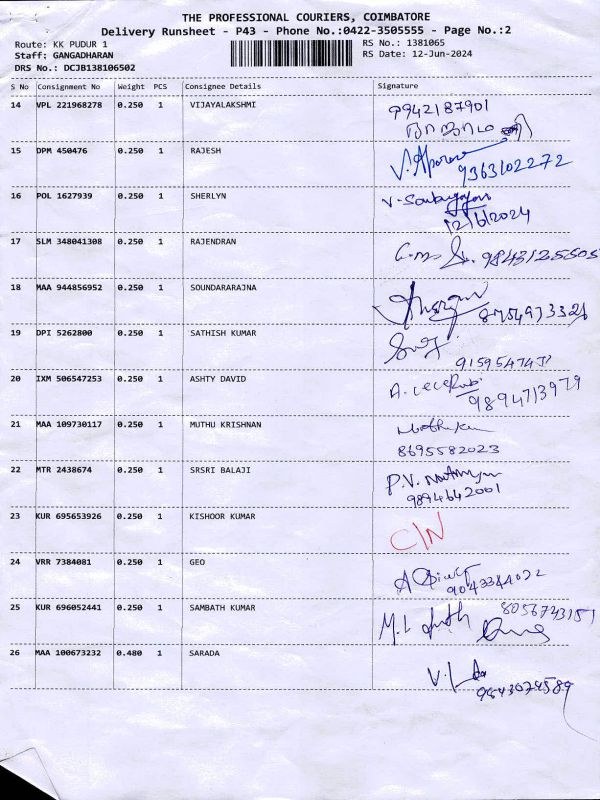 THE PROFESSIONAL COURIERS, COIMBATORE
Delivery Runsheet - P43 - Phone No.:0422-3505555 - Page No.:2
Route: KK PUDUR 1
Staff: GANGADHARAN
DRS No.: DCJB138106502
RS No.: 1381065
RS Date: 12-Jun-2024
S No Consignment No Weight PCS Consignee Details Signature
14 VPL 221968278 0.250 1 VIJAYALAKSHMI 9942187901
15 DPM 450476 0.250 1 RAJESH 9363102272
16 POL 1627939 0.250 1 SHERLYN
12/6/2024
17 SLM 348041308 0.250 1 RAJENDRAN 9843125505
18 MAA 944856952 0.250 1 SOUNDARARAJNA 8754973326
19 DPI 5262800 0.250 1 SATHISH KUMAR
20 IXM 506547253 0.250 1 ASHTY DAVID
9894713979
21 MAA 109730117 0.250 1 MUTHU KRISHNAN
8695582023
22 MTR 2438674 0.250 1 SRSRI BALAJI P.V.
9894642001
23 KUR 695653926 0.250 1 KISHOOR KUMAR C/N
24 VRR 7384081 0.250 1 GEO
9043344022
25 KUR 696052441 0.250 1 SAMBATH KUMAR 8056743151
26 MAA 100673232 0.480 1 SARADA
9843074589